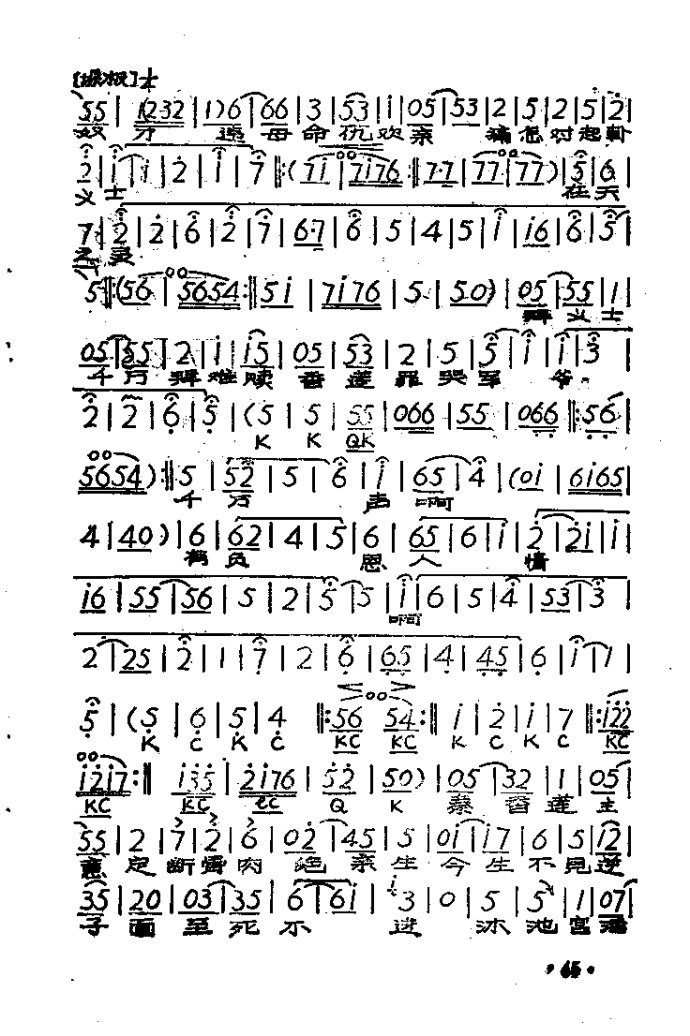 [垛板] サ
55 | (232 | 1) 6 | 66 | 3 | 53 | i | 05 | 53 | 2 | 5 | 2 | 5 | 2 |
奴 才 违 母 命 仇 欢 亲 痛 怎 对 起
2 | i | i | 2 | i | 7 ‖: (7i | 7i76 :‖ 77 | 77 | 77) | 5 | 6 |
义 士 在 天
7 | 2 | 2 | 6 | 2 | 7 | 67 | 6 | 5 | 4 | 5 | i | i6 | 6 | 5 |
之 灵
5 ‖: (56 | 5654 :‖ 5i | 7i76 | 5 | 50) | 05 | 55 | 1 |
拜 义 士
05 | 55 | 2 | i | i5 | 05 | 53 | 2 | 5 | 5 | i | i | 3 |
千 万 拜 难 赎 香 莲 罪 哭 军 爷
2 | 2 | 6 | 5 | (5 | 5 | 55 | 066 | 55 | 066 ‖: 56 |
K K QK
5654) :‖ 5 | 52 | 5 | 6 | i | 65 | 4 | (0i | 6i65 |
千 万 声 啊
4 | 40) | 6 | 62 | 4 | 5 | 6 | 65 | 6 | i | 2 | 2i | i |
辜 负 恩 人 情
i6 | 55 | 56 | 5 | 2 | 5 | 5 | i | 6 | 5 | 4 | 53 | 3 |
啊
2 | 25 | 2 | 1 | 7 | 2 | 6 | 65 | 4 | 45 | 6 | i | 1 |
5 | (5 | 6 | 5 | 4 ‖: 56 54 :‖ i | 2 | i | 7 ‖: i22 |
K C K C KC KC K C K C KC
i2i7 :‖ i35 | 2i76 | 52 | 50) | 05 | 32 | 1 | 05 |
KC KC Q K 秦 香 莲 主
55 | 2 | 7 | 2 | 6 | 02 | 45 | 5 | 0i | i7 | 6 | 5 | i2 |
意 定 断 骨 肉 绝 亲 生 今 生 不 见 逆
35 | 20 | 03 | 35 | 6 | 6i | 3 | 0 | 5 | 5 | 1 | 07 |
子 面 至 死 不 进 沐 池 宫
• 65 •